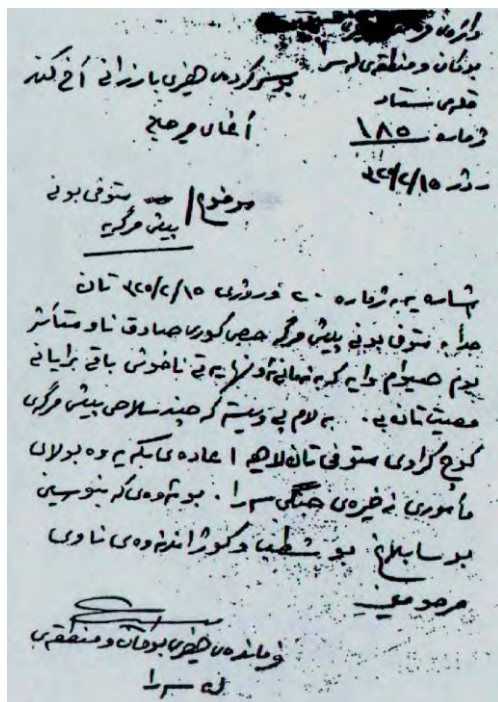 بوکان و منطقەی لە سرا
قلمی ستاد
ژمارە ١٨٥
روژ ٣٢٥/٢/١٥
بو سرکردەی هیزی بارزانی آخ کند
آغای میر حاج
موضوع / متوفی بونی
پیش مرگیە
اشارە یە بە ژمارە ٢٠ و روژی ٣٢٥/٢/١٥ تان
متوفی بونی پیش مرگە کوری صادق ناو متأثر
بوم هیوام وایە کە ناخوشی باقی برایانی
مصیبت تان بی. بە لام پی ویستە کە چند سلاحی پیش مرگەی
کوچ کراوی متوفی تان لایە اعادەی بکە یە وە بولای
مأموری ذخیرەی جنگی سرا. بو ئەوەی کە بنوسینی
بو سابلاغ بو و کوژاندنەوەی ناوی
مرحومی
فرماندەی هیزی بوکان و منطقەی
لە سرا